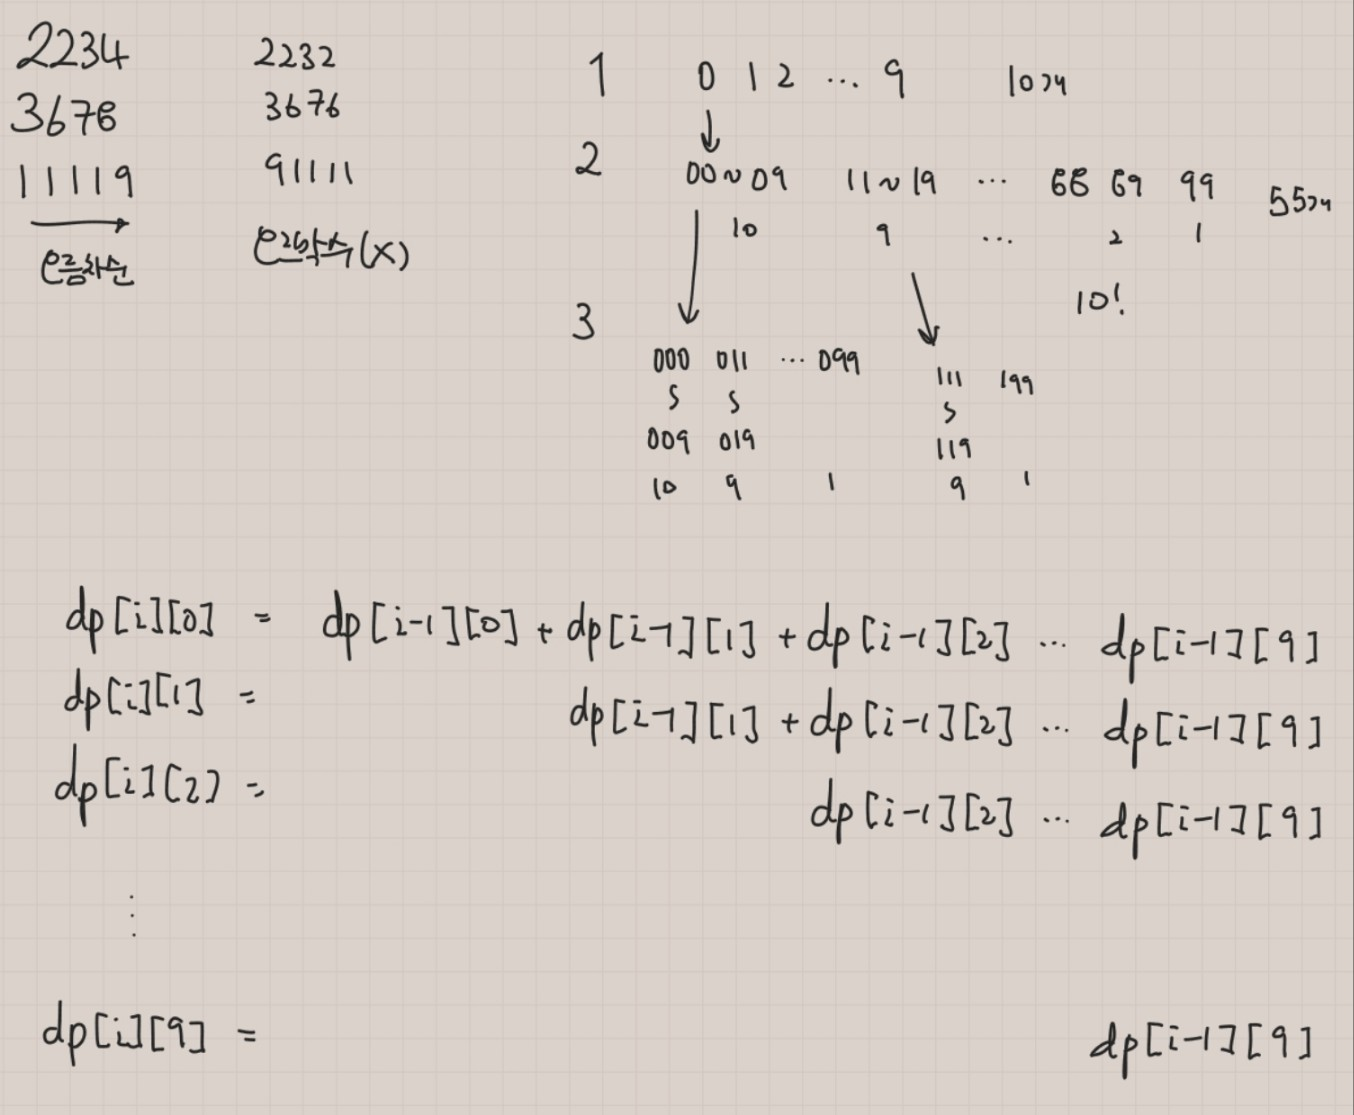 2234
3678
11119
오름차순
2232
3676
91111
오르막수(X)
1 0 1 2 ... 9 10개
2 00~09 11~19 ... 88 89 99 55개
10 9 ... 2 1
10!
3
000 011 ... 099
S S
009 019
10 9 1
111 199
S
119
9 1
dp[i][0] = dp[i-1][0] + dp[i-1][1] + dp[i-1][2] ... dp[i-1][9]
dp[i][1] = dp[i-1][1] + dp[i-1][2] ... dp[i-1][9]
dp[i][2] = dp[i-1][2] ... dp[i-1][9]
⋮
dp[i][9] = dp[i-1][9]